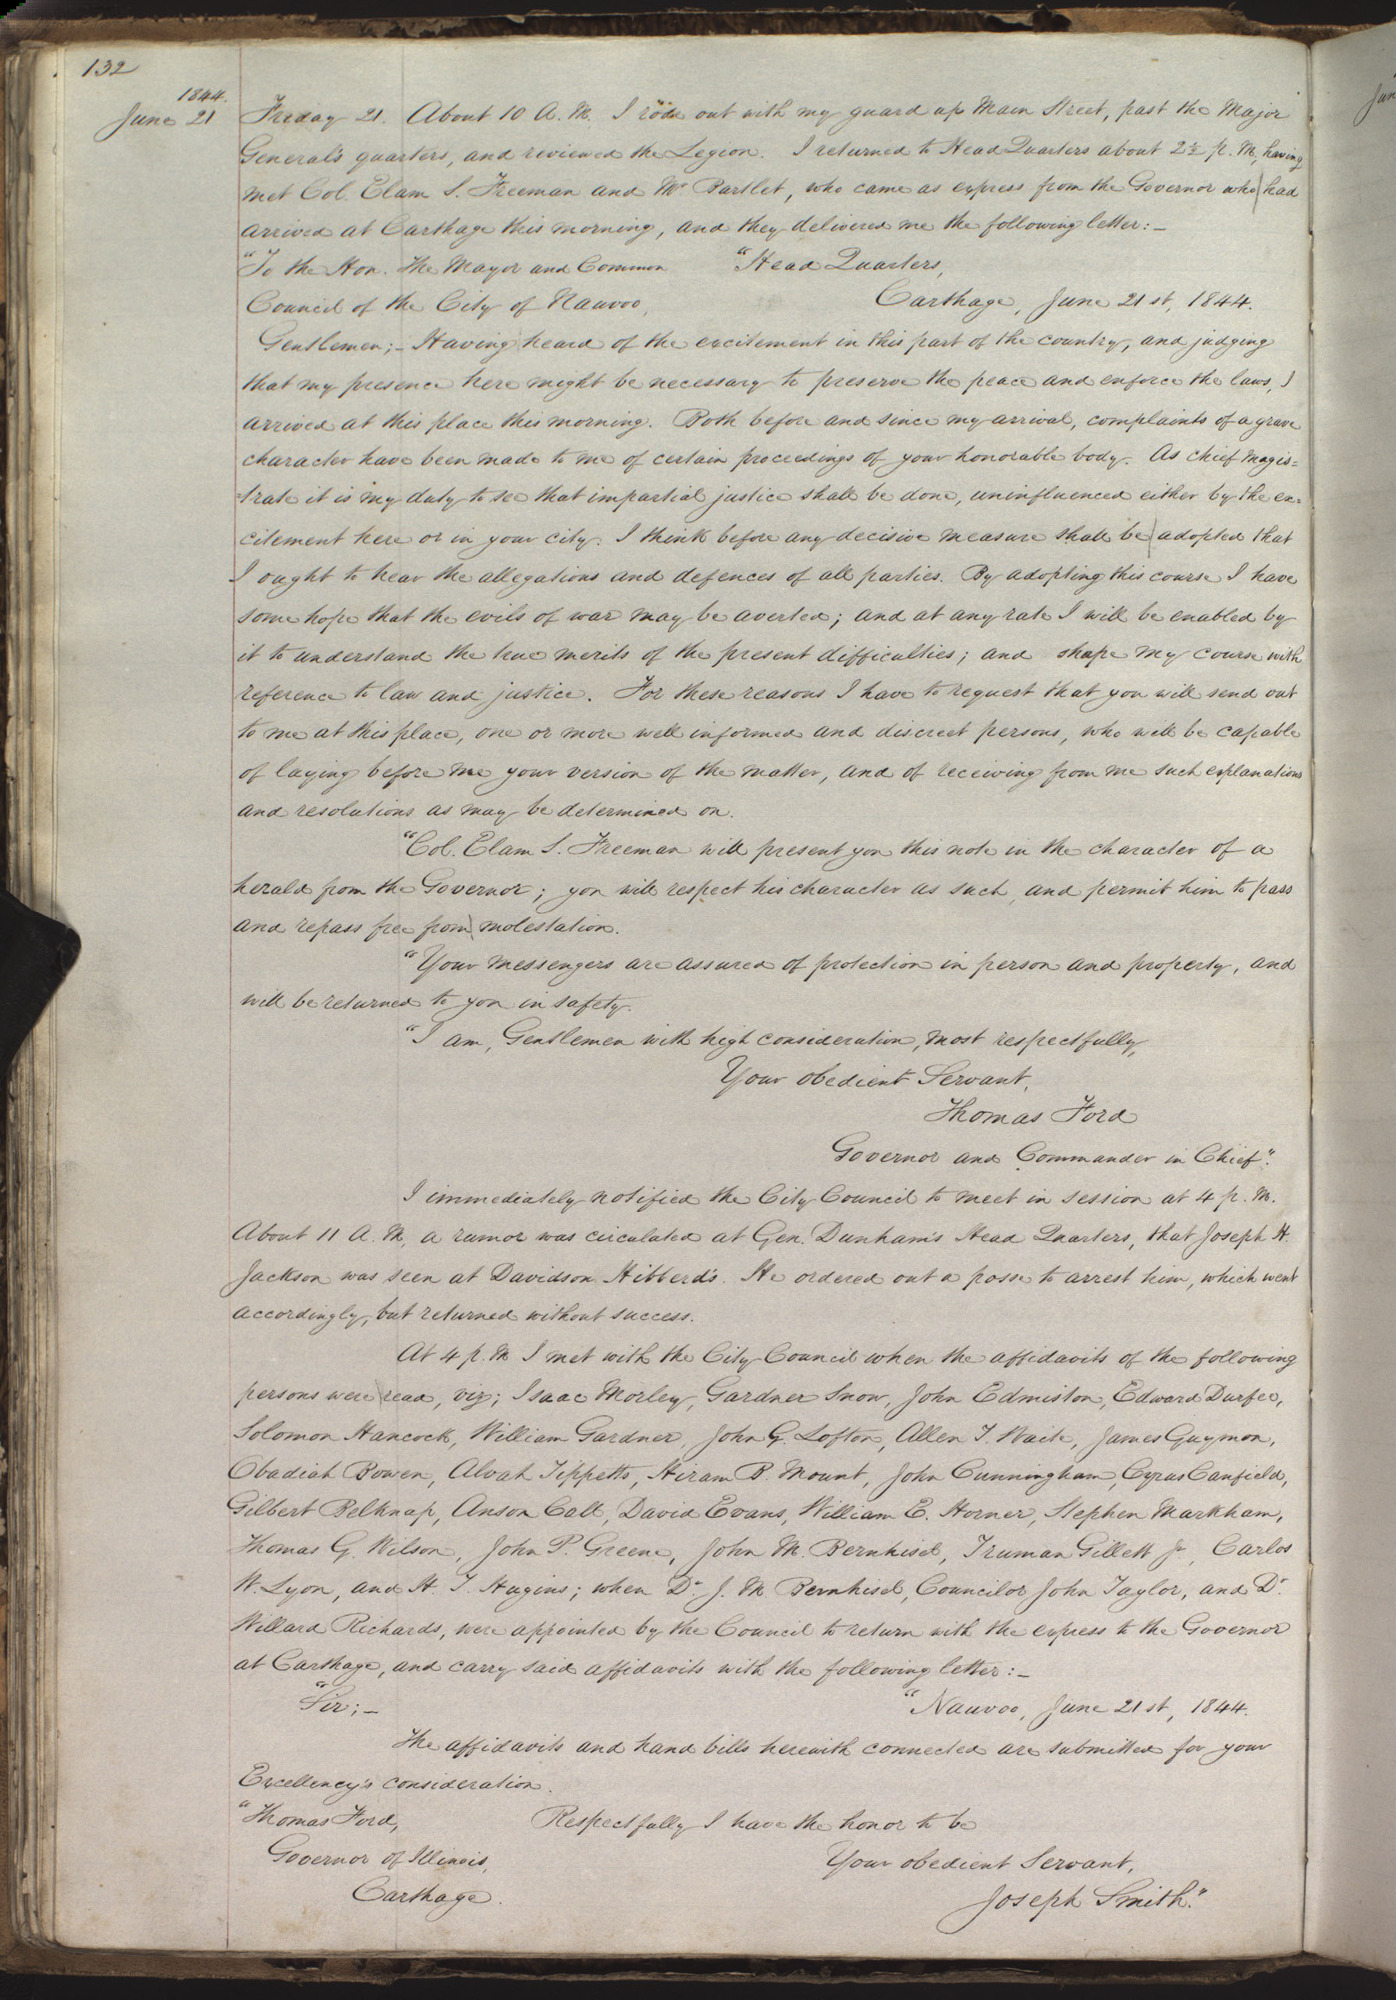 132
1844.
June 21
Friday 21. About 10 A. M. I rode out with my guard up Main Street, past the Major
General's quarters, and reviewed the Legion. I returned to Head Quarters about 2½ p. M, having
met Col. Elam S. Freeman and Mr Bartlet, who came as express from the Governor who had
arrived at Carthage this morning, and they delivered me the following letter:—
"To the Hon. the Mayor and Common "Head Quarters,
Council of the City of Nauvoo, Carthage, June 21st, 1844.
Gentlemen;— Having heard of the excitement in this part of the country, and judging
that my presence here might be necessary to preserve the peace and enforce the laws, I
arrived at this place this morning. Both before and since my arrival, complaints of a grave
character have been made to me of certain proceedings of your honorable body. As chief magis=
=trate it is my duty to see that impartial justice shall be done, uninfluenced either by the ex=
citement here or in your city. I think before any decisive measure shall be adopted that
I ought to hear the allegations and defences of all parties. By adopting this course I have
some hope that the evils of war may be averted; and at any rate I will be enabled by
it to understand the true merits of the present difficulties; and shape my course with
reference to law and justice. For these reasons I have to request that you will send out
to me at this place, one or more well informed and discreet persons, who will be capable
of laying before me your version of the matter, and of receiving from me such explanations
and resolutions as may be determined on.
"Col. Elam S. Freeman will present you this note in the character of a
herald from the Governor; you will respect his character as such, and permit him to pass
and repass free from molestation.
"Your messengers are assured of protection in person and property, and
will be returned to you in safety.
"I am, Gentlemen with high consideration, most respectfully,
Your obedient Servant,
Thomas Ford
Governor and Commander in Chief".
I immediately notified the City Council to meet in session at 4 p. M.
About 11 A. M, a rumor was circulated at Gen. Dunham's Head Quarters, that Joseph H.
Jackson was seen at Davidson Hibberd's. He ordered out a posse to arrest him, which went
accordingly, but returned without success.
At 4 p. M I met with the City Council when the affidavits of the following
persons were read, viz; Isaac Morley, Gardner Snow, John Edmiston, Edward Durfee,
Solomon Hancock, William Gardner, John G. Lofton, Allen T. Waite, James Guymon,
Obadiah Bowen, Alvah Tippetts, Hiram B. Mount, John Cunningham, Cyrus Canfield,
Gilbert Belknap, Anson Call, David Evans, William E. Horner, Stephen Markham,
Thomas G. Wilson, John P. Greene, John M. Bernhisel, Truman Gillett Jr, Carlos
W. Lyon, and H. T. Hugins; when Dr J. M Bernhisel, Councilor John Taylor, and Dr.
Willard Richards, were appointed by the Council to return with the express to the Governor
at Carthage, and carry said affidavits with the following letter:—
"Sir;— "Nauvoo, June 21st, 1844.
The affidavits and hand bills herewith connected are submitted for your
Excellency's consideration.
"Thomas Ford, Respectfully I have the honor to be
Governor of Illinois, Your obedient Servant,
Carthage. Joseph Smith."